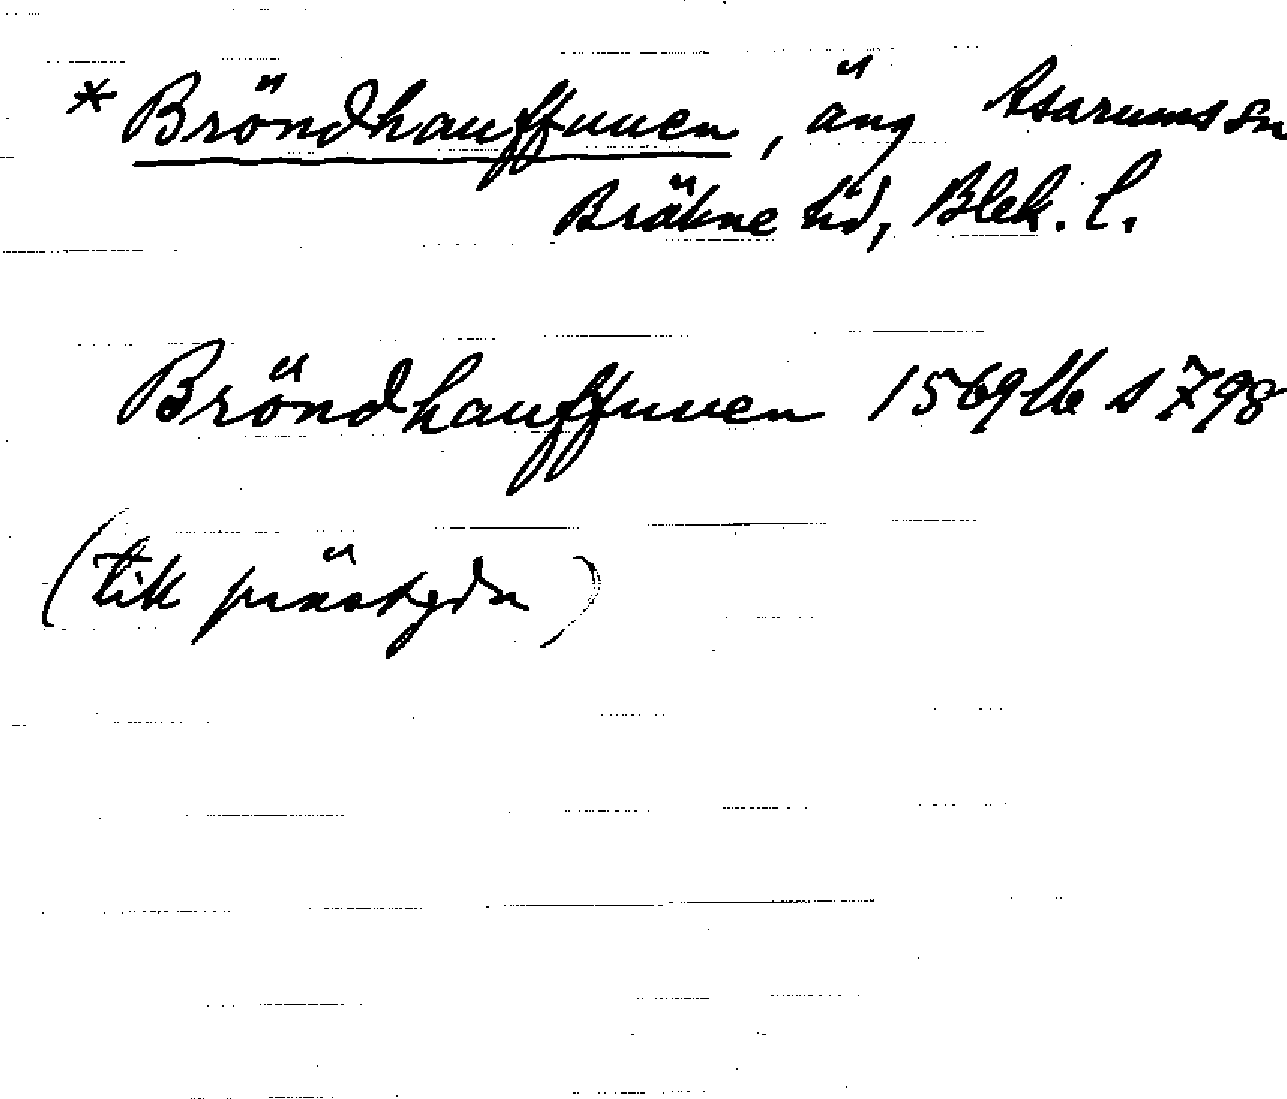 * Bröndhauffuuen, äng Asarums sn
Bräkne hd, Blek. l.
Bröndhauffuuen 1569 Ub s 798
(till prästgdn)